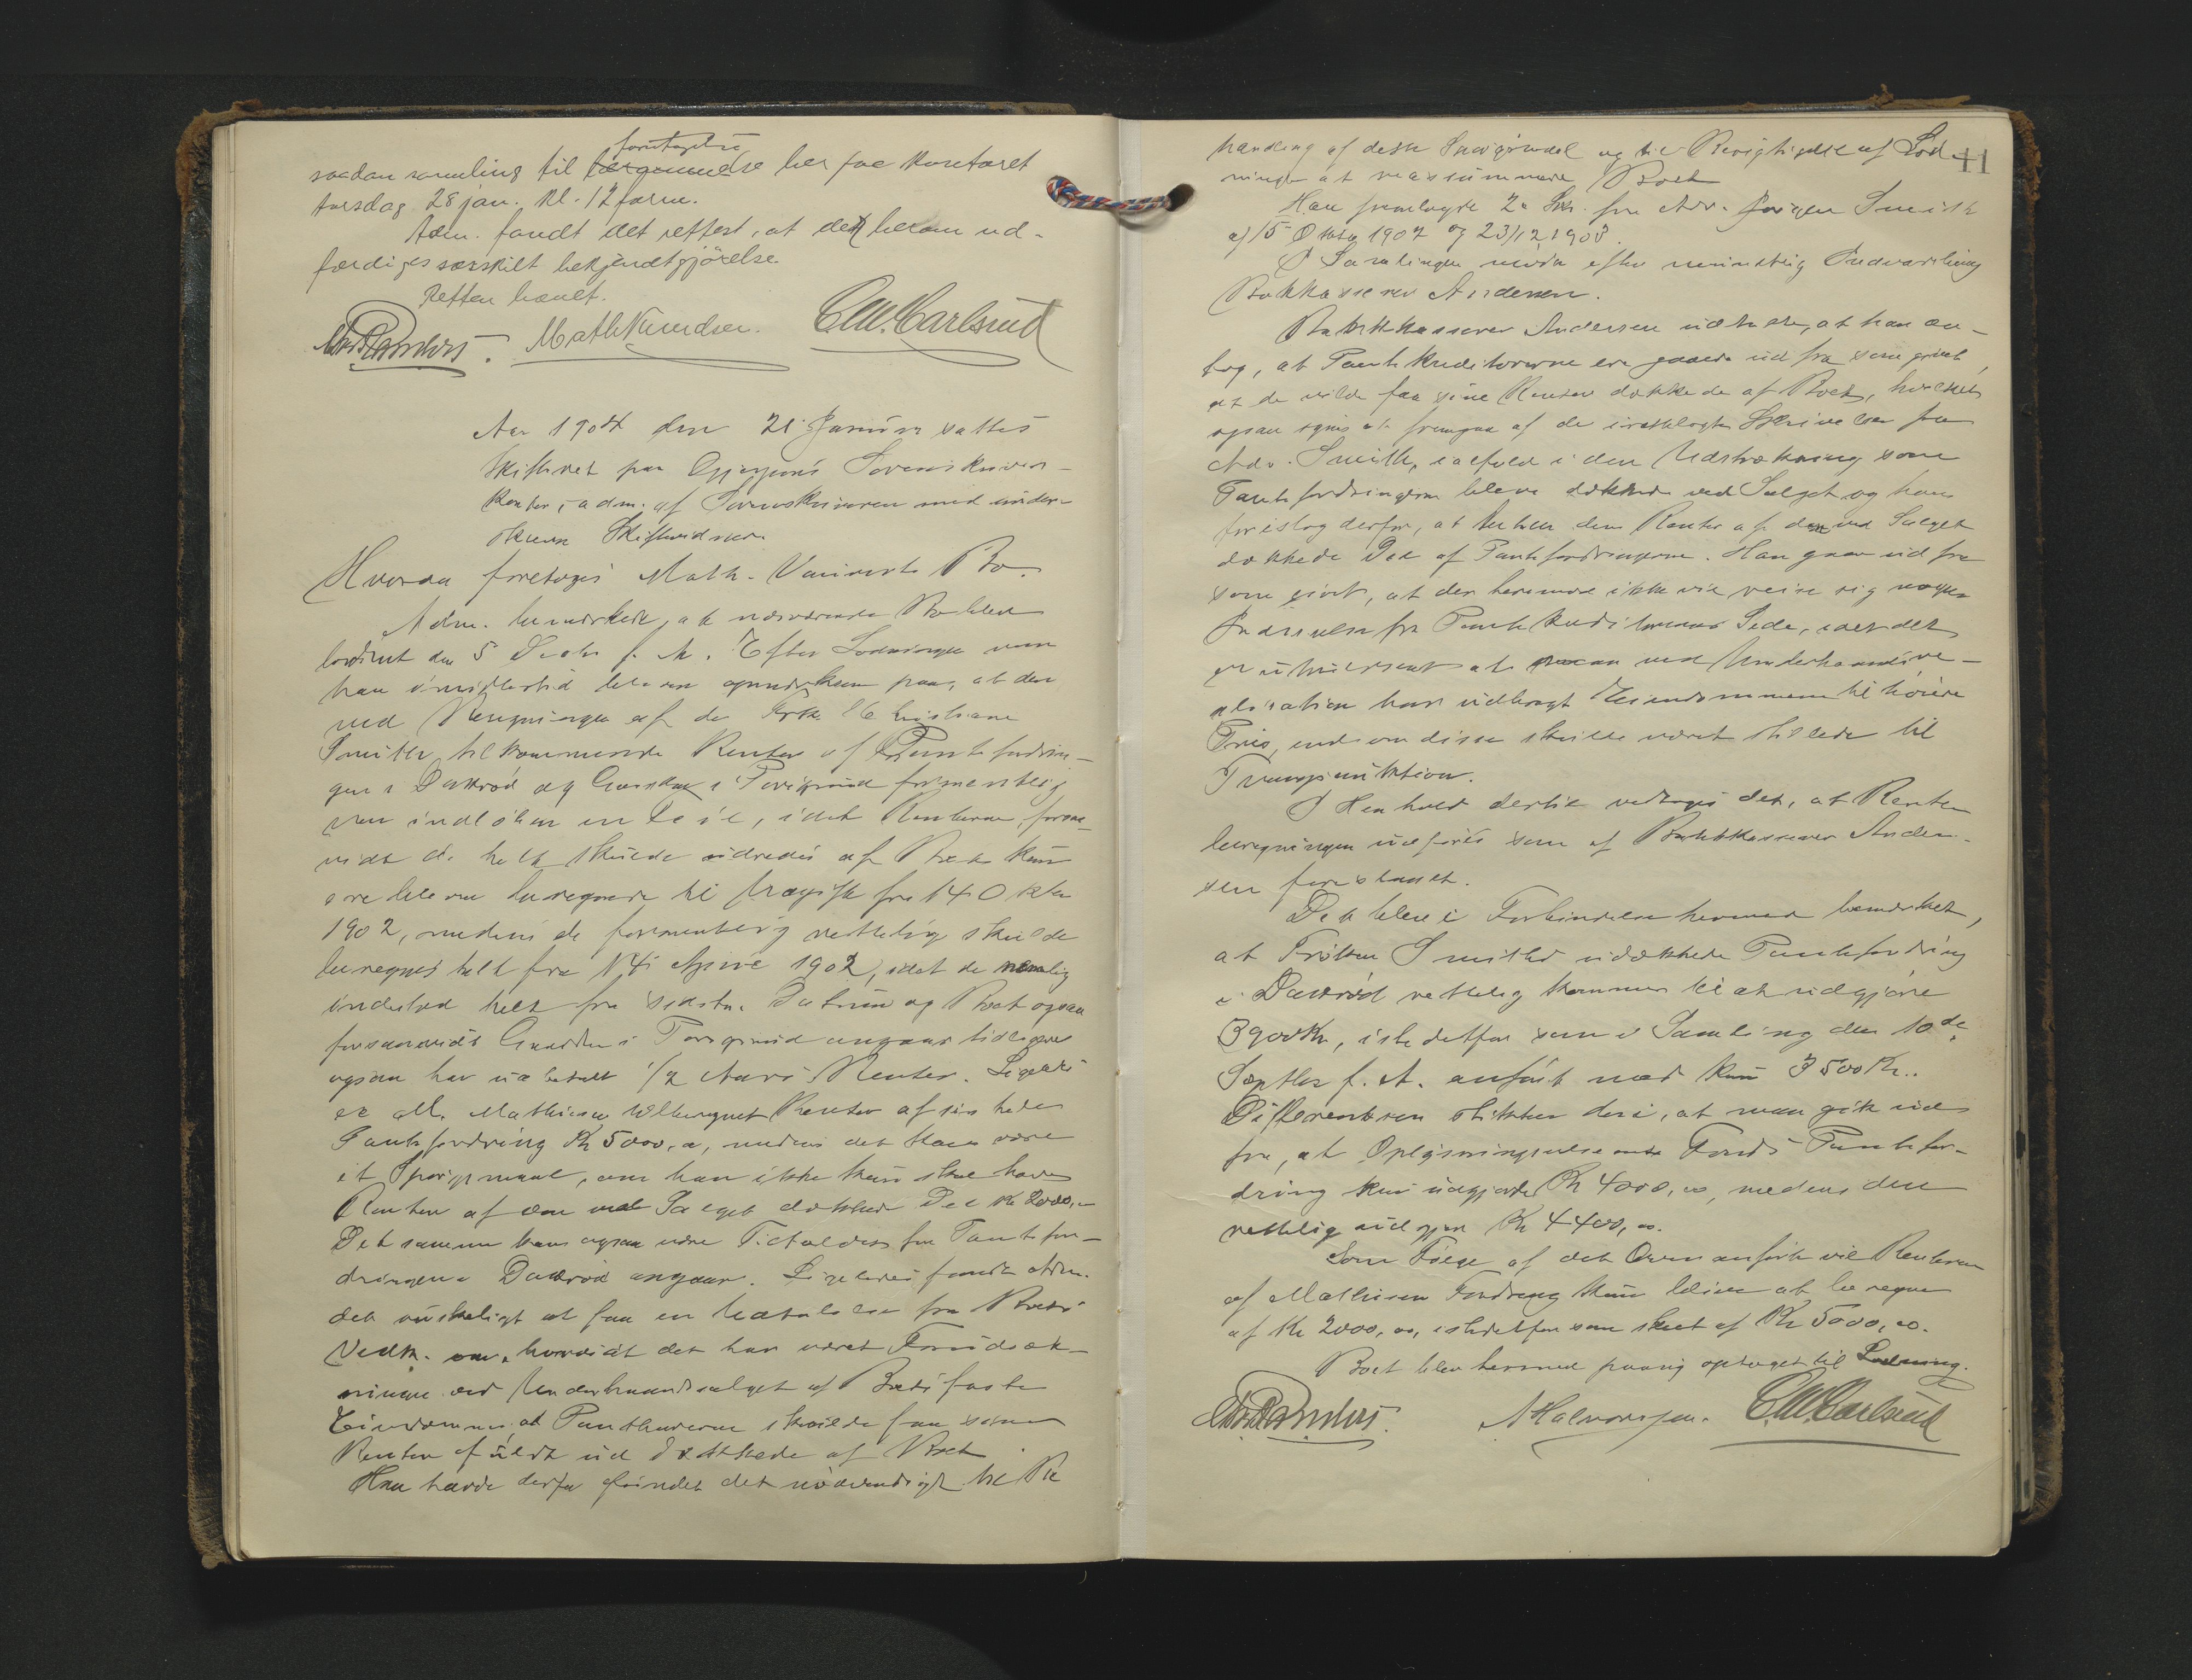 foretagelse
saadan samling til her paa kontoret
torsdag 28 jan. kl. 12 form.
Adm. fandt det rettest, at der herom ud-
færdiges særskilt bekjendtgjörelse.
Retten hævet.
Math Knudsen. C.M. Carlsrud
Aar 1904 den 21 Januar sattes
Skifteret paa Sorenskriver-
kontor, adm. af Sorenskriveren med under-
skrevne Skiftevidner
Hvorda foretoges Math. Bo.
Adm. bemærkede, at nærværende Bo blev
loddet den 5 Decbr f. A. Efter Lodningen var
han imidlertid bleven opmærksom paa, at der
ved Beregningen af de Frk. Christiane
Smith tilkommende Renter af Pantefordrin-
gen i Dalsrød og Gaarden i Porsgrund formentlig
var indløben en Feil, idet Renterne, forsaa-
vidt de helt skulde udredes af Boet kun
ere blevne beregnede til Afgift fra 14 Oktbr
1902, medens de formentlig rettelig skulde
beregnes helt fra 14 April 1902, idet de nemlig
indestod helt fra sidstn. Datum og Boet ogsaa
forsaavidt Gaarden i Porsgrund angaar tidligere
ogsaa har udbetalt 1/2 Aars Renter. Ligeledes
er A. Mathisen tilberegnet Renter af sin hele
Pantefordring Kr 5000,00, medens det kan være
et Spørgsmaal, om han ikke kun skal have
Renter af den ved Salget dækkede Del Kr 2000,00
Det samme kan ogsaa være Tilfældet for Pantefor-
dringen i Dalsrød angaar. Ligeledes fandt Adm.
det ønskeligt at faa en Udtalelse fra Boets
Vedk. om, hvorvidt det har været Forudsæt-
ningen ved Underhaandssalget af Boets faste
Eiendomme, at Panthaverne skulde faa sine
Renter fuldt ud dækkede af Boet.
Han havde derfor fundet det nødvendigt til Be
41
handling af dette Spørgsmaal og til Berigtigelse af Lod-
ningen at reassummere Boet
Han fremlagde 2 Skr. fra Adv. Jørgen Smith
af 15 Oktbr 1902 og 23/12 1903.
I Samlingen møder efter mundtlig Indvarsling
Bankkasserer Andersen.
Bankkasserer Andersen udtalte, at han an-
tog, at Pantekreditorerne ere gaaede ud fra som givet,
at de vilde faa sine Renter dækkede af Boet, hvilket
ogsaa synes at fremgaa af de fremlagte Skrivelser fra
Adv. Smith, ialfald i den Udstrækning som
Pantefordringerne bleve dækkede ved Salget og han
foreslog derfor, at der blev dem Renter af den ved Salget
dækkede Del af Pantefordringerne. Han gaar ud fra
som givet, at der herimod ikke vil reise sig nogen
Indsigelse fra Pantekreditorernes Side, idet det
er utvilsomt at man ved Underhaandsre-
alisation har udbragt Eiendommene til høiere
Pris, end om disse skulle været stillede til
Tvangsauktion.
I Henhold dertil vedtoges det, at Rente-
beregningen udføres som af Bankkasserer Ander-
sen foreslaaet.
Det blev i Forbindelse hermed bemærket,
at Frøken Smiths udækkede Pantefordring
i Dalsrød rettelig kommer til at udgjøre
3900 Kr, istedetfor som i Samling den 10de
Septbr f. A. anført med kun 3500 Kr.
Differentsen stikker deri, at man gik ud
fra, at Oplysningsvæsenets Fonds Pantefor-
dring kun udgjorde Kr 4000,00, medens den
rettelig udgjør Kr 4400,00.
Som Følge af det Ovenanførte vil Renterne
af Mathisens Fordring kun blive at beregne
af Kr 2000,00, istedetfor som skeet af Kr 5000,00.
Boet blev hermed paany optaget til Lodning.
A Halvorsen. C.M. Carlsrud